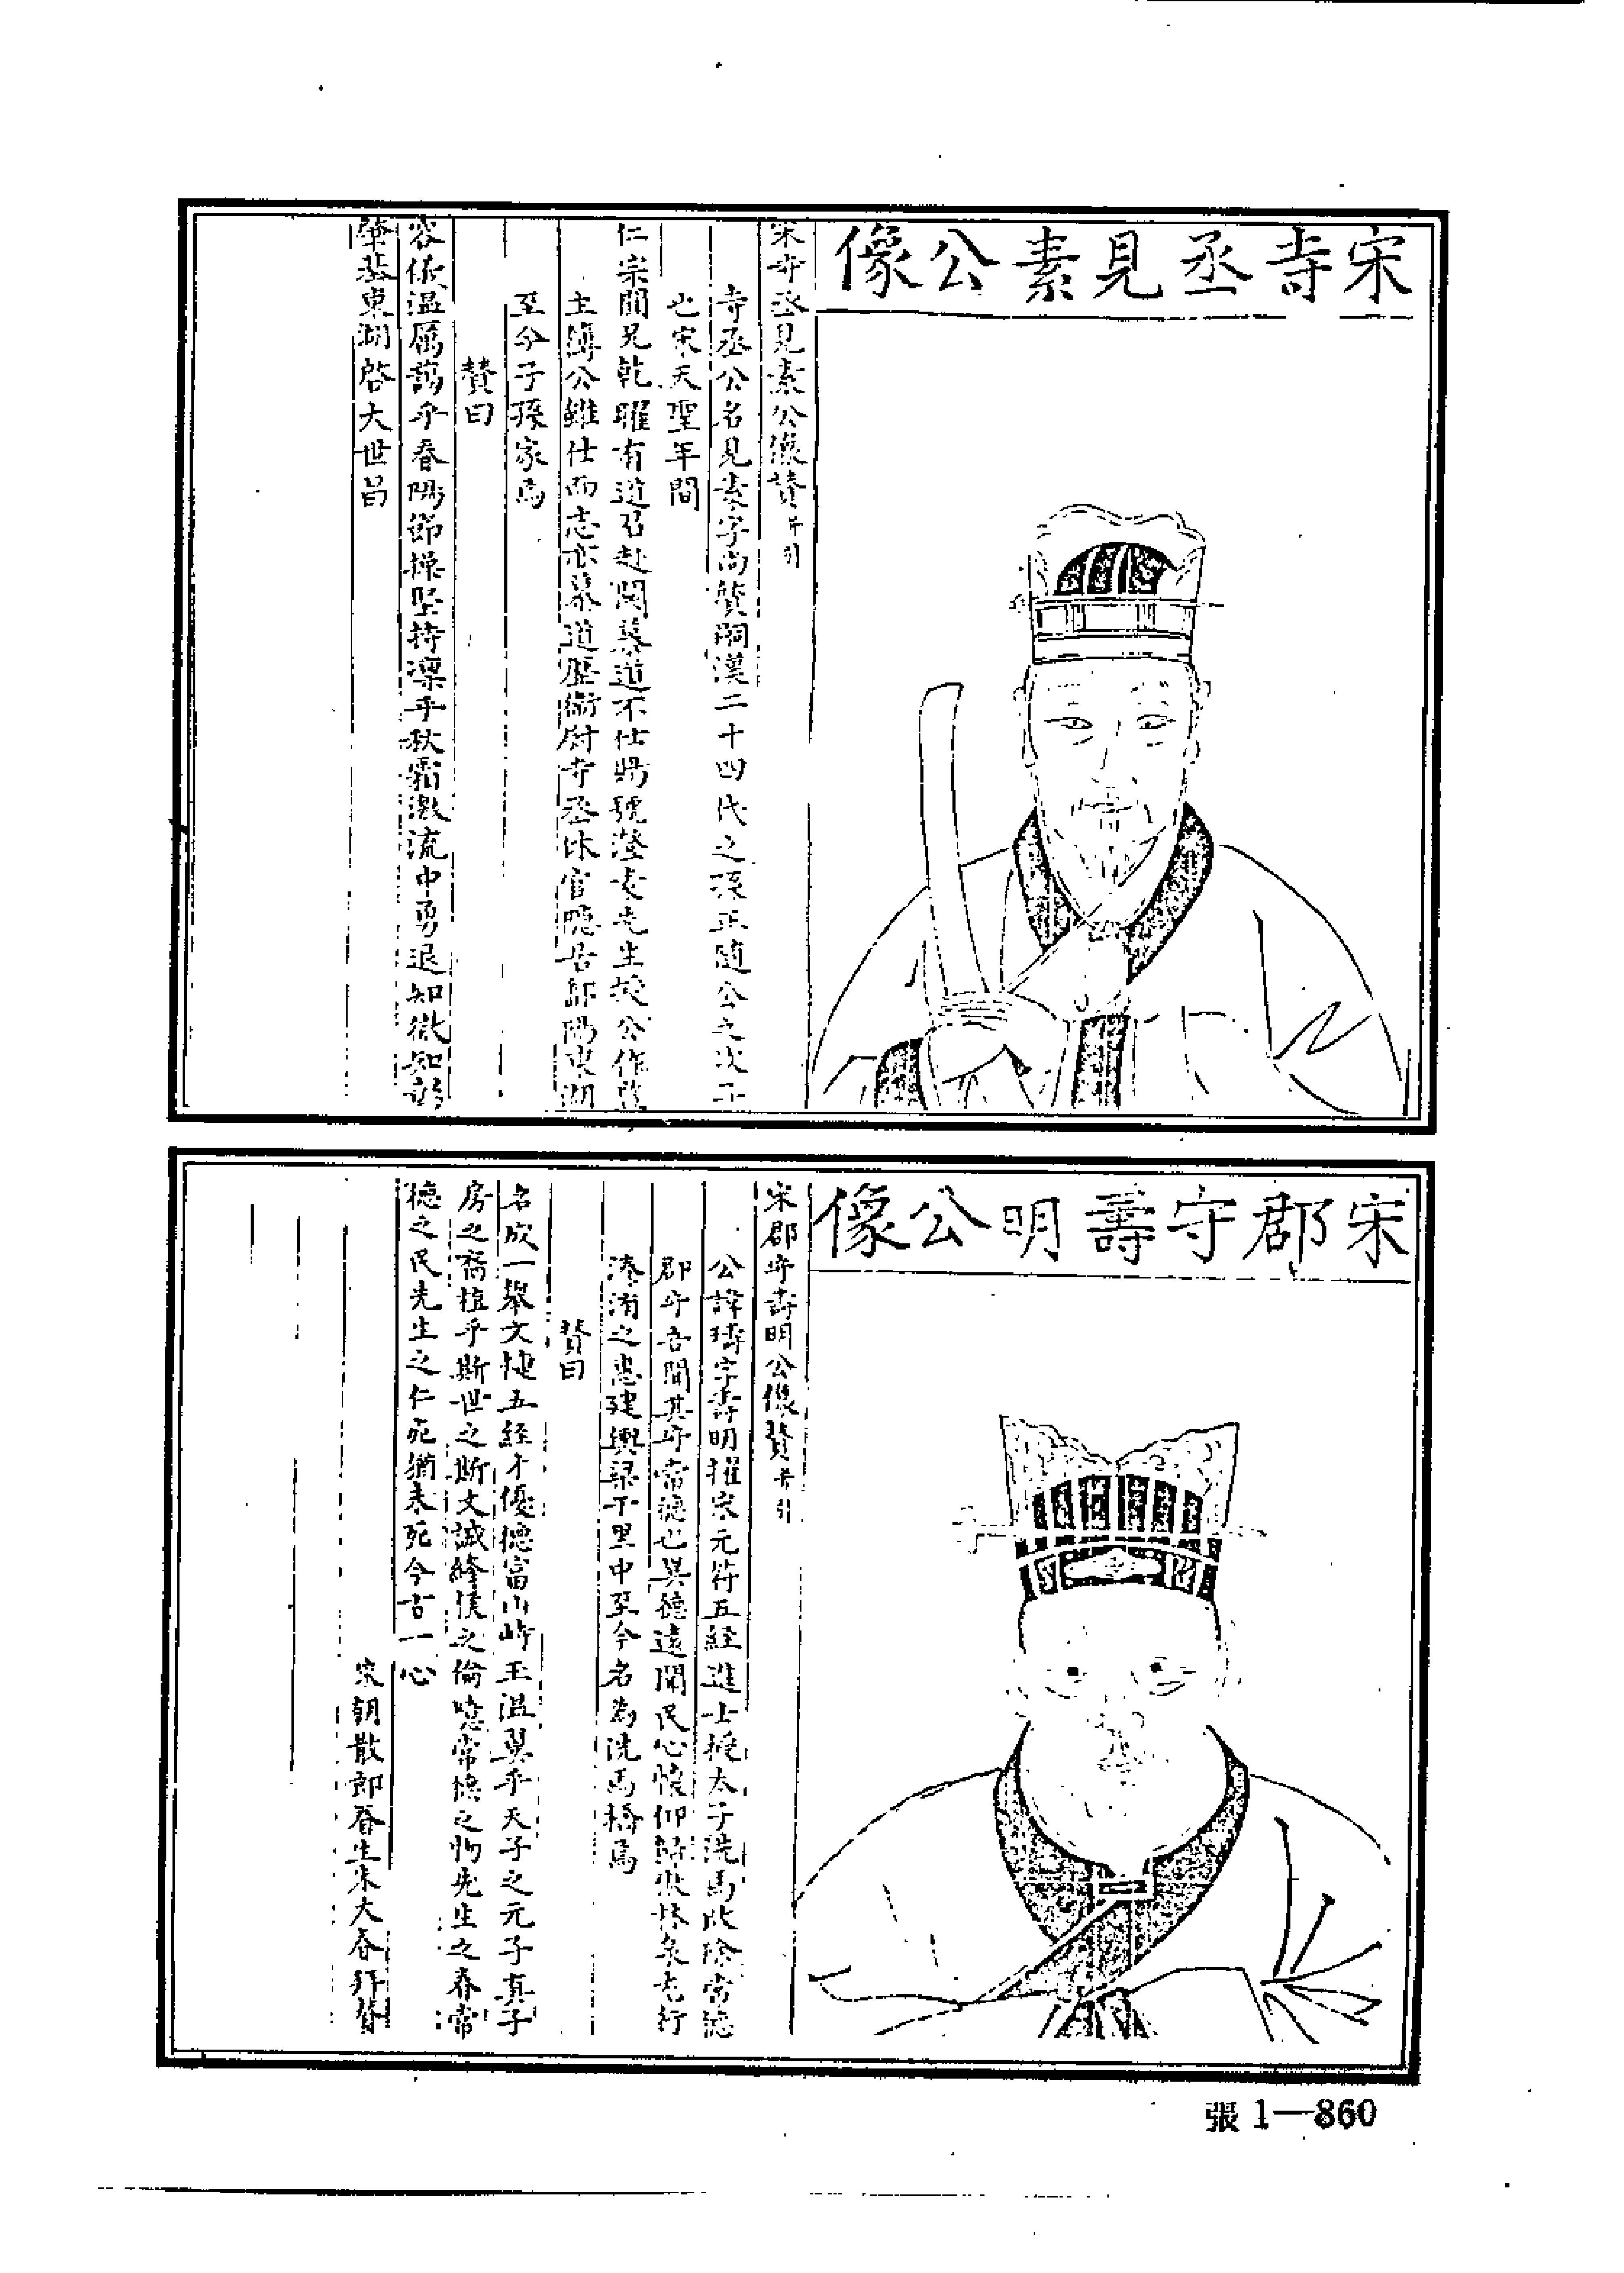 宋寺丞見素公像
宋寺丞見素公像賛并引
寺丞公名見素字尚質嗣漢二十四代之孫正隨公之次子
也宋天聖年間
仁宗聞兄乾曜有道召赴闕慕道不仕賜號澄素先生授公作監
主簿公雖仕而志亦慕道歷衛尉寺丞休官隱居鄱陽東湖
至今子孫家焉
賛曰
容儀温厲藹乎春陽節操堅持凜乎秋霜激流中勇退知微知彰
肇基東湖啓大世昌
宋郡守壽明公像
宋郡守壽明公像賛并引
公諱璹字壽明擢宋元符五経進士授太子洗馬改除常德
郡守吾聞其守常德也異德遠聞民心懷仰歸休林泉尤行
湊洧之惠建輿梁于里中至今名為洗馬橋焉
賛曰
名成一舉文捷五経才優德富山峙玉温翼乎天子之元子真子
房之裔植乎斯世之斯文誠絳侯之倫噫常德之物先生之春常
德之民先生之仁死猶未死今古一心
宋朝散郎眷生朱大春拜賛
張1—860